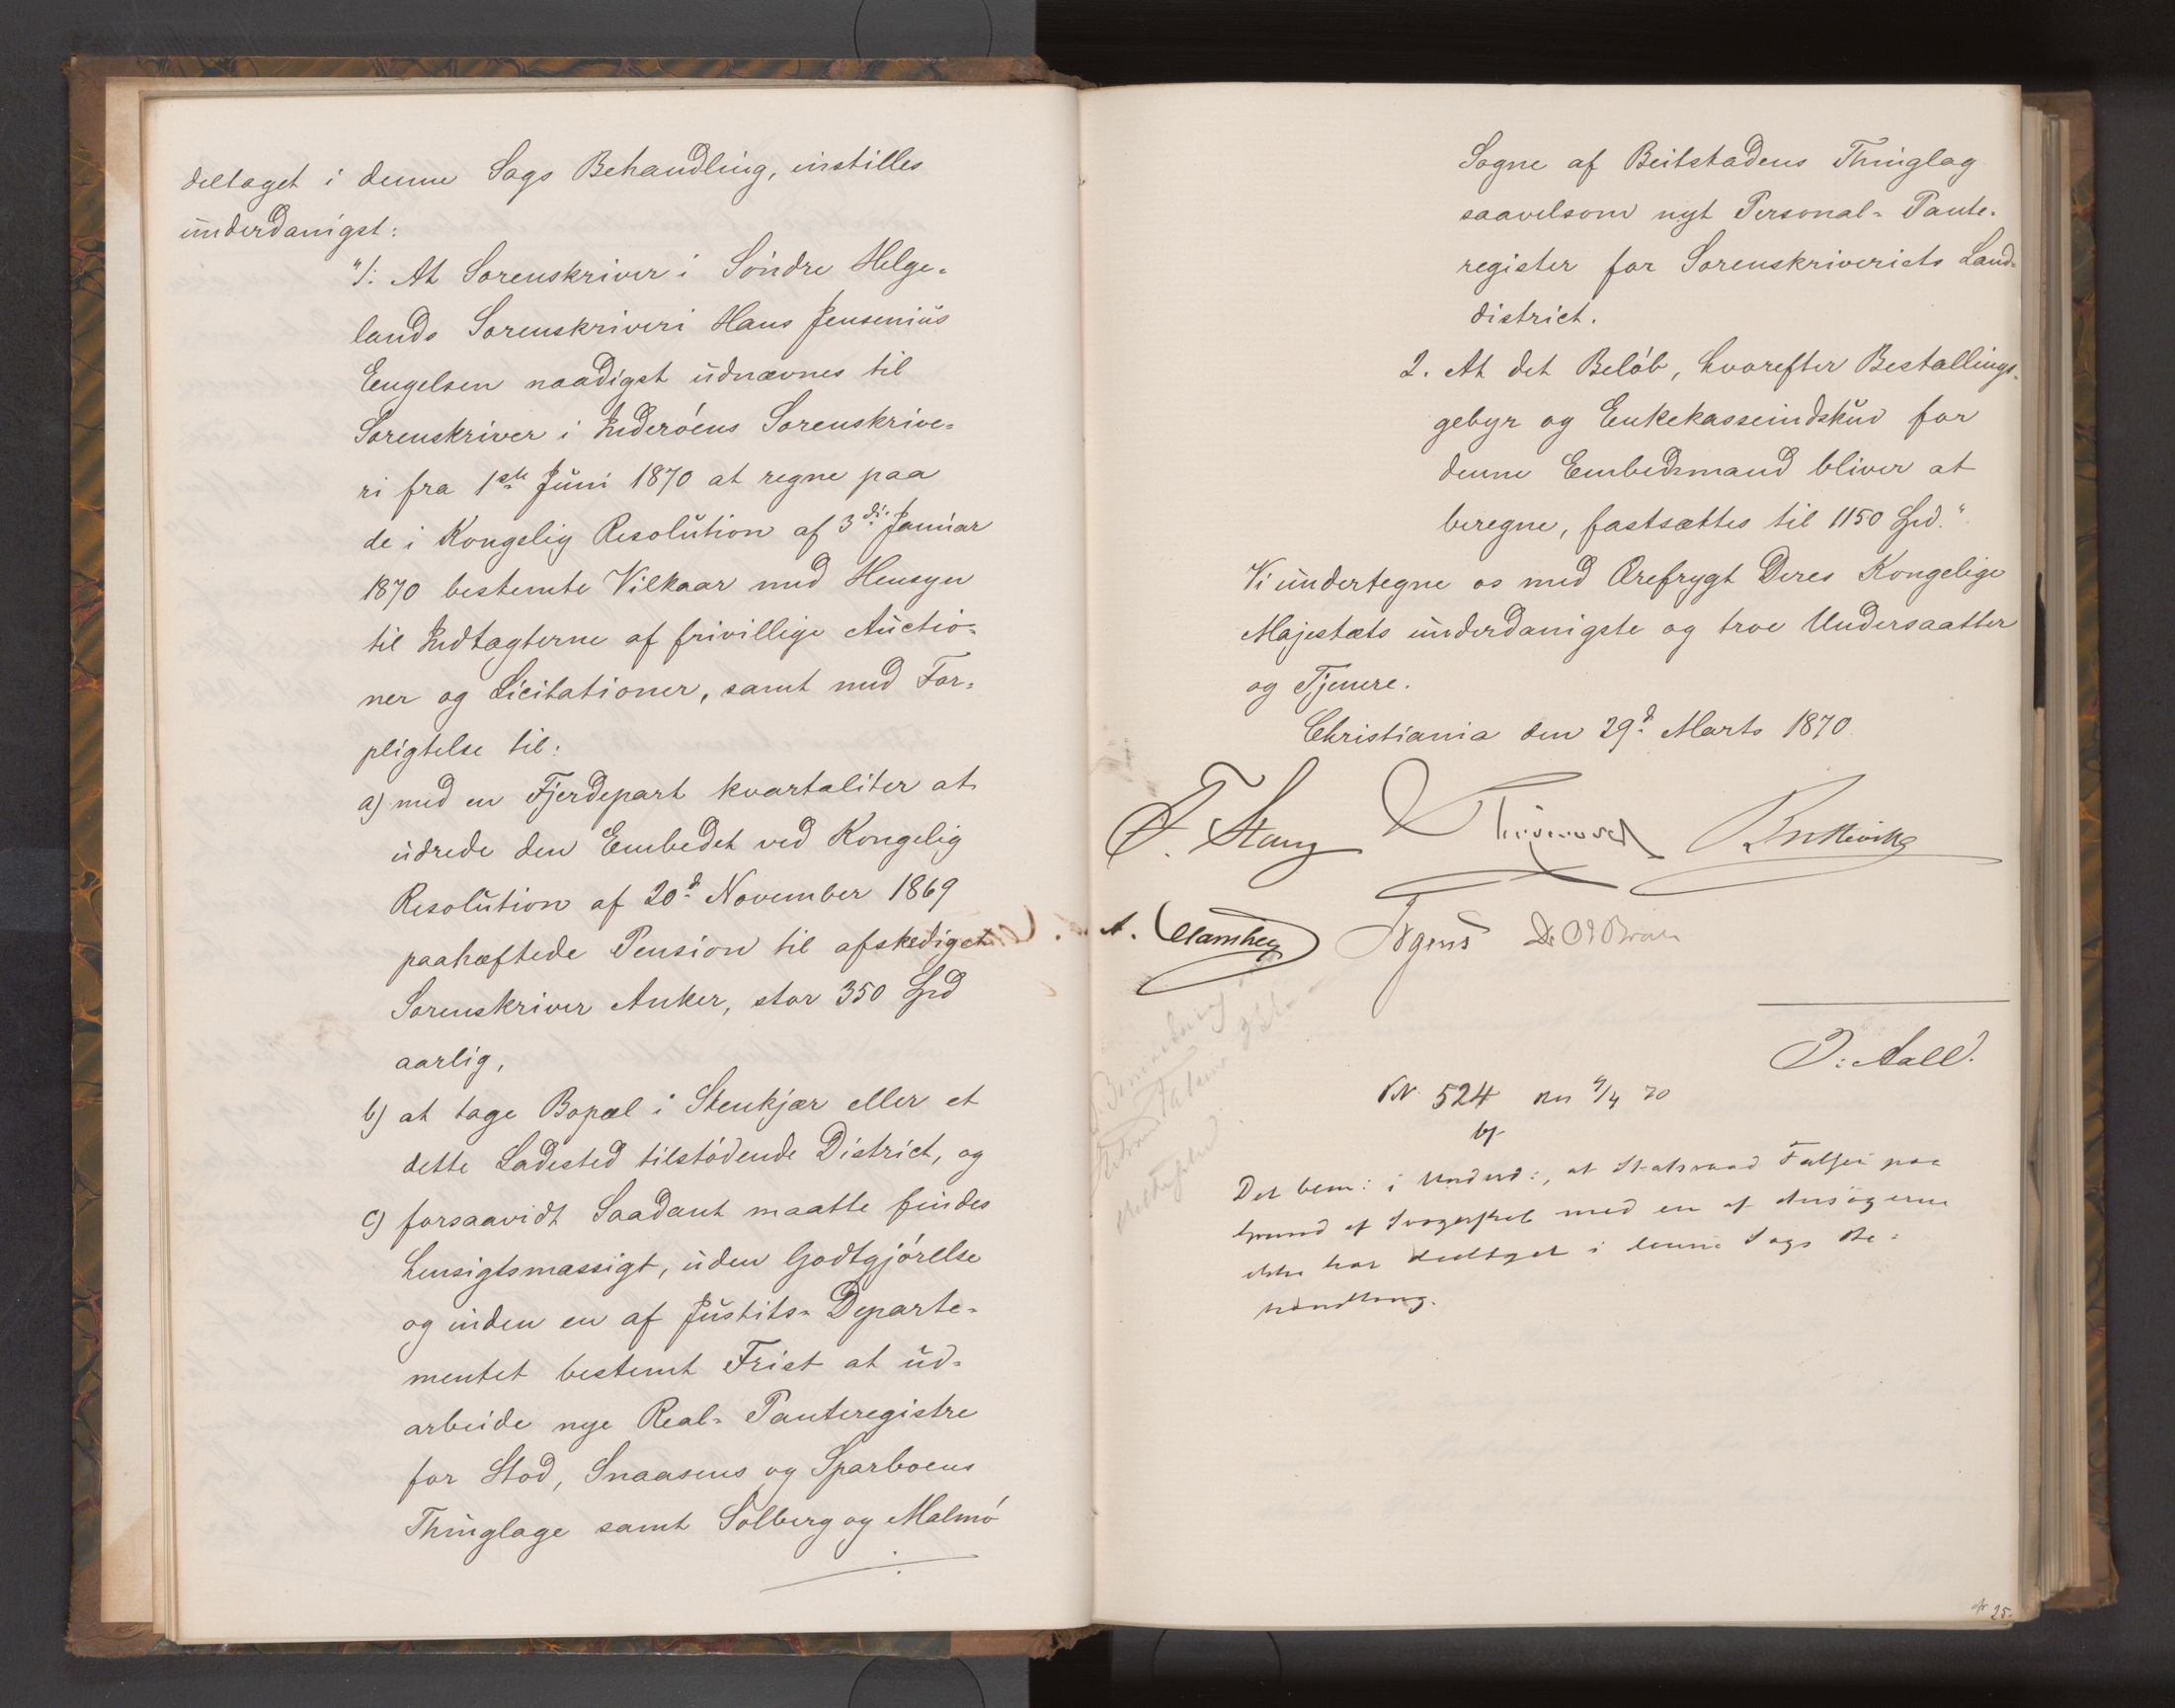 deltaget i denne Sags Behandling, instilles
underdanigst:
"1: At Sorenskriver i Söndre Helge-
lands Sorenskriveri Hans Jensenius
Engelsen naadigst udnævnes til
Sorenskriver i Inderöens Sorenskrive-
ri fra 1ste Juni 1870 at regne paa
de i Kongelig Resolution af 3die Januar
1870 bestemte Vilkaar med Hensyn
til Indtægterne af frivillige Auctio-
ner og Licitationer, samt med For-
pligtelse til:
a) med en Fjerdepart kvartaliter at
udrede den Embedet ved Kongelig
Resolution af 20d November 1869
paahæftede Pension til afskediget
Sorenskriver Anker, stor 350 Spd
aarlig,
b) at tage Bopæl i Stenkjær eller et
dette Ladested tilstödende District, og
c) forsaavidt Saadant maatte findes
hensigtsmæssigt, uden Godtgjörelse
og inden en af Justits-Departe-
mentet bestemt Frist at ud-
arbeide nye Real-Panteregistre
for Stod, Snaasens og Sparboens
Thinglage samt Solberg og Malmö
Sogne af Beitstadens Thinglag
saavelsom nyt Personal-Pante-
register for Sorenskriveriets Land-
district.
2. At det Belöb, hvorefter Bestallings-
gebyr og Enkekasseindskud for
denne Embedsmand bliver at
beregne, fastsættes til 1150 Spd."
Vi undertegne os med Ærefrygt Deres Kongelige
Majestæts underdanigste og troe Undersaatter
og Tjenere.
Christiania den 29d Marts 1870
F. Stang
Irgens
J: Aall.
N 524 4/4 70
Det bem: i Underd:, at Statsraad Falsen paa
Grund af Svogerskab med en af Ansögerne
ikke har deeltaget i denne Sags Be-
handling.
25.